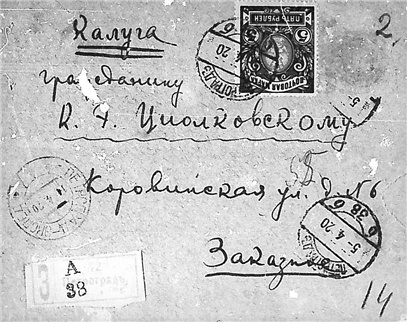 Калуга
2.
гражданину
К. Э. Циолковскому
Коровинская ул. д. №6
Заказное
14
З
А
38
ПЯТЬ РУБЛЕЙ
5
5
ПОЧТОВАЯ МАРКА
4 20
6
5-4.20
38 6